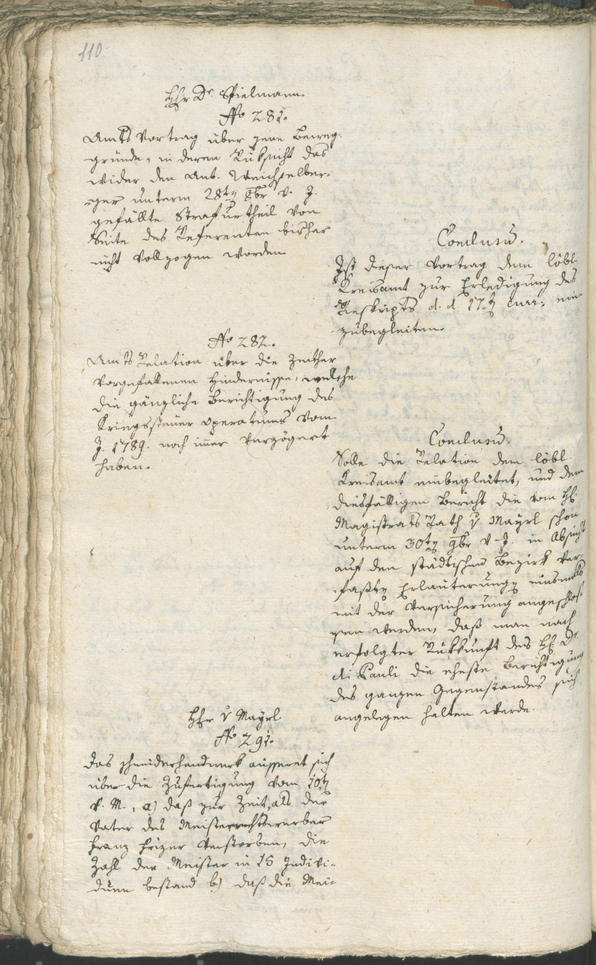 110
Hr Dr. Spielmann.
No 281.
Amts Vortrag über jene Beweg-
gründe, in deren Rüksicht das
wider den Ant. Weichselber-
ger unterm 28ten 9br v. J.
gefällte Strafurtheil von
Seite des Referenten bisher
nicht vollzogen worden
Conclusum.
Ist dieser Vortrag dem löbl.
Kreisamt zur Erledigung des
Reskripts d. d. 17. curr: ein-
zubegleiten.
No 282.
Amts Relation über die zeither
vorgefallenen Hindernisse, welche
die gänzliche Berichtigung des
Kriegssteuer operatums vom
J. 1789. noch immer verzögert
haben.
Conclusum.
Solle die Relation dem löbl.
Kreisamt einbegleitet, und dem
diesfälligen Bericht die vom H.
Magistrats Rath v Mayrl schon
unterm 30ten 9br v. J. in Absicht
auf den städtischen Bezirk ver-
faßte Erläuterung
mit der Versicherung angeschlos-
sen werden, daß man nach
erfolgter Rükkunft des H. Dr.
di Pauli die eheste Berichtigung
des ganzen Gegenstandes sich
angelegen halten werde.
Hr v Mayrl
No 291.
Das Schneiderhandwerk äusseret sich
über die Zufertigung vom 10t
v. M., a) daß zur Zeit, als der
Vater des Meisterrechtswerber
Franz verstorben, die
Zahl der Meister in 15 Indivi-
duen bestand b) daß die Mei-